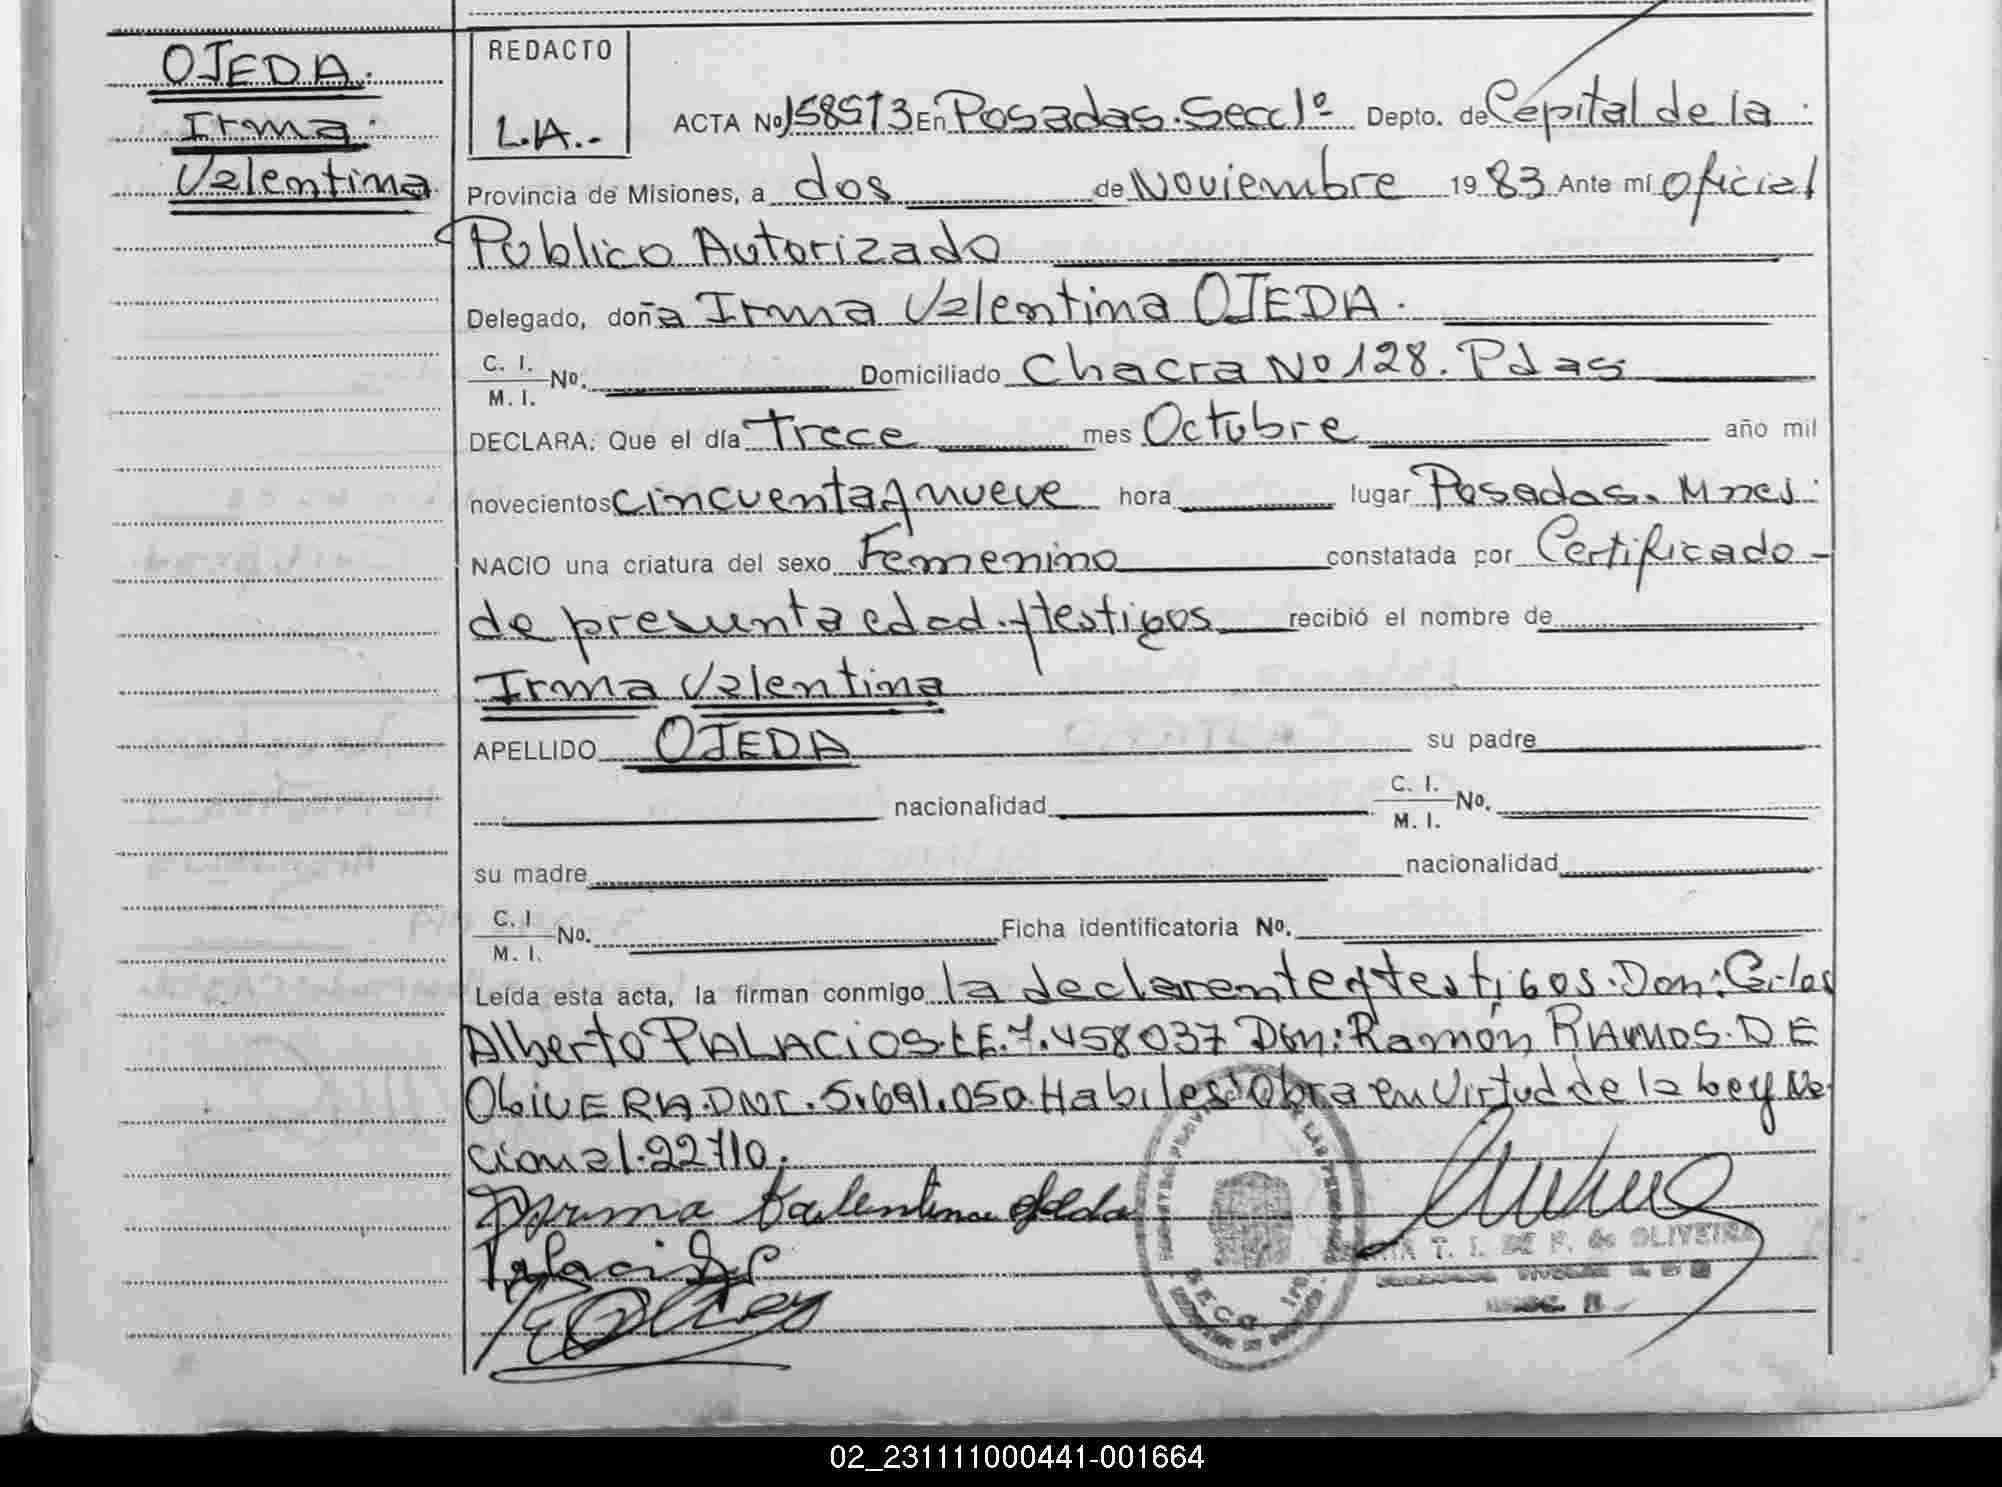 OJEDA.
Irma
Valentina
REDACTO
L.A.-
ACTA No 158513 En Posadas. Secc 1º Depto. de Capital de la
Provincia de Misiones, a dos de Noviembre 1983 Ante mí oficial
Publico Autorizado
Delegado, doña Irma Valentina OJEDA.
C. I. M. I. No. Domiciliado Chacra Nº 128. Pdas
DECLARA: Que el día Trece mes Octubre año mil
novecientos cincuenta y nueve hora lugar Posadas. Mnes.
NACIO una criatura del sexo Femenino constatada por Certificado-
de presunta edad. y testigos recibió el nombre de
Irma Valentina
APELLIDO OJEDA su padre
nacionalidad C. I. M. I. No.
su madre nacionalidad
C. I M. I. No. Ficha identificatoria No.
Leída esta acta, la firman conmigo la declarente y testigos. Don: Carlos
Alberto PALACIOS. L.E. 7.458037 Don: Ramón RAMOS. DE
OLIVERA. DNI. 5.691.050. Habiles. Obra en Virtud de la Ley Na
cional. 22710.
Irma Valentina Ojeda
T. I. DE P. de OLIVEIRA
02_231111000441-001664